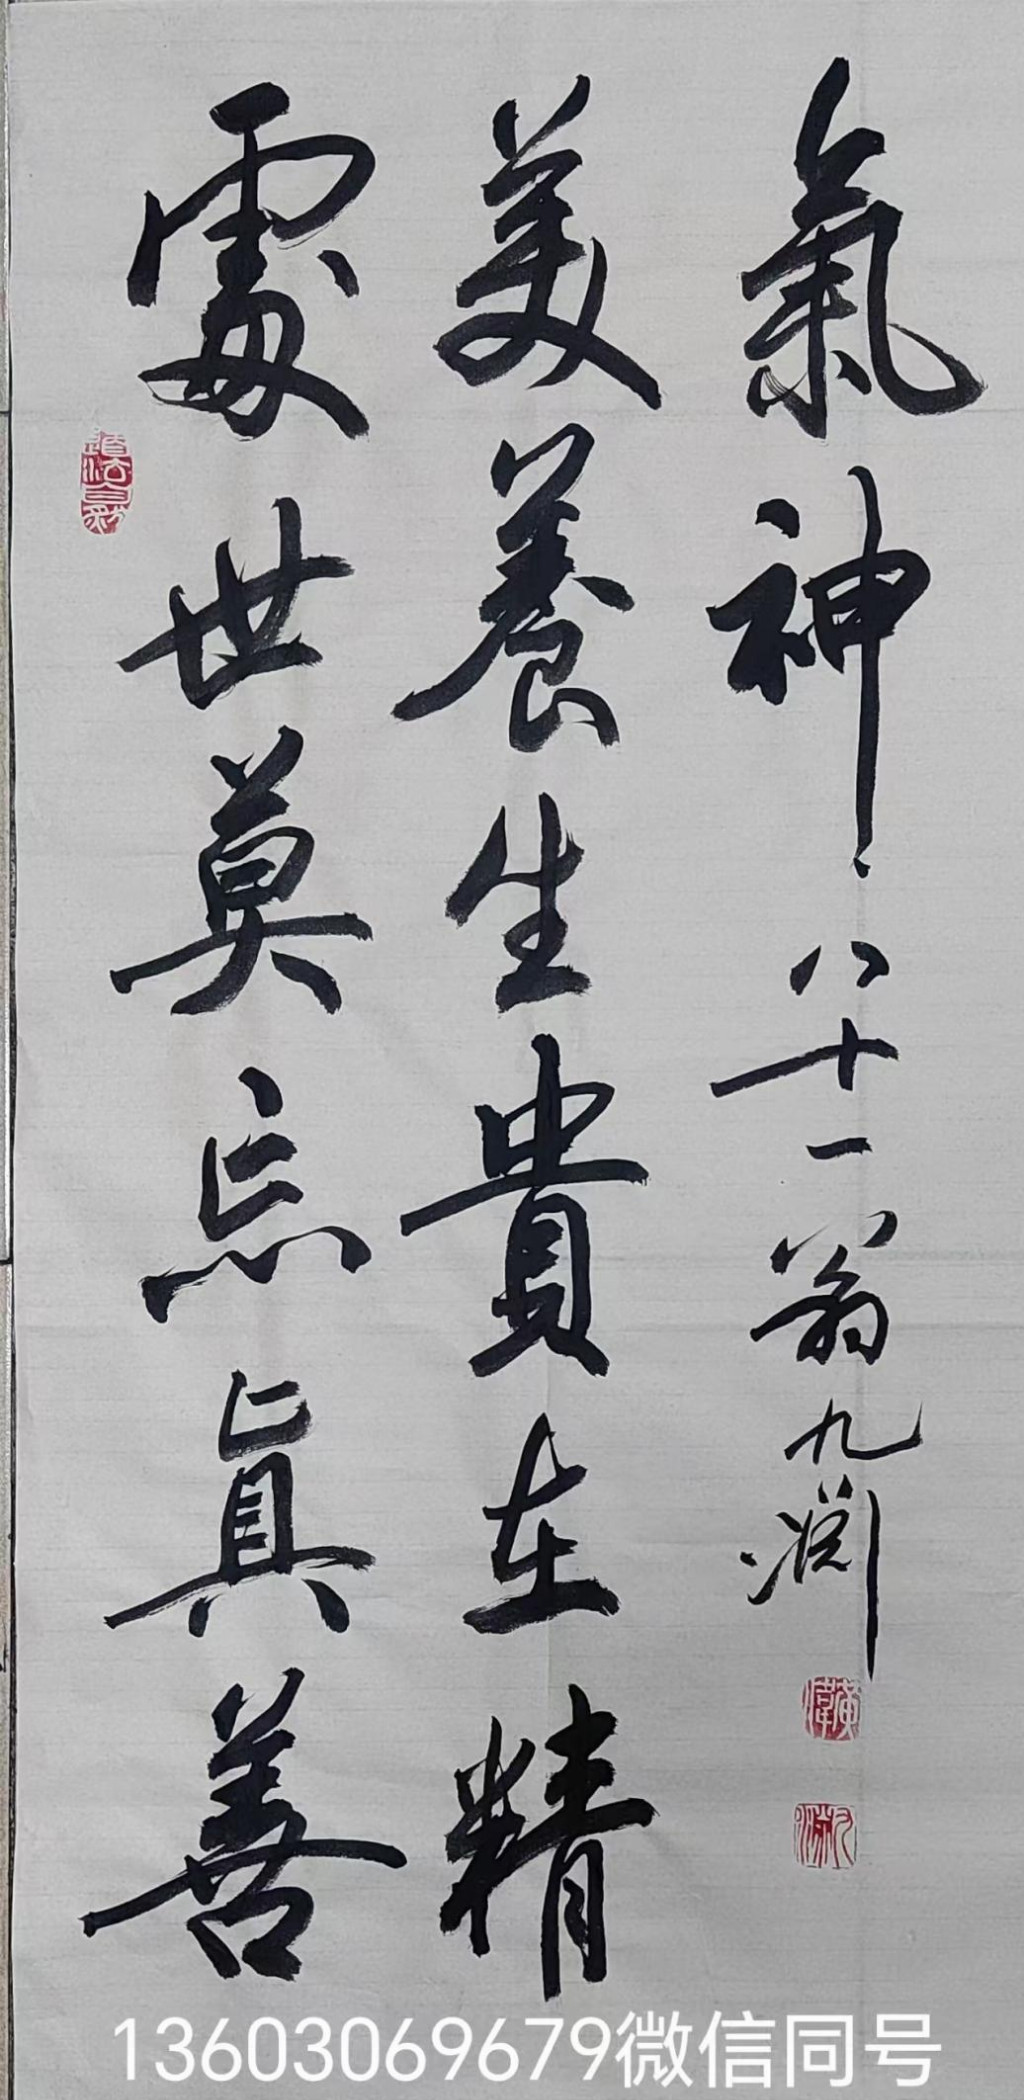 處世莫忘眞善
美養生貴在精
氣神
八十一翁九渊
道法自然
九渊
13603069679微信同号